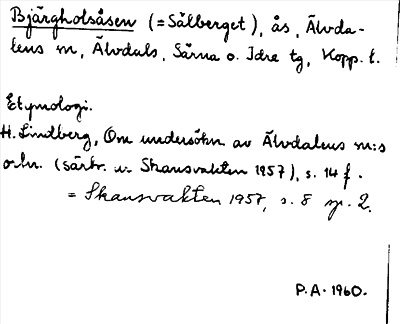 Bjärgholsåsen (=Sälberget), ås, Älvda-
lens sn, Älvdals, Särna o. Idre tg, Kopp. l.
Etymologi.
H. Lindberg, Om undersökn av Älvdalens sn:s
ortn. (särtr. ur Skansvakten 1957), s. 14 f.
= Skansvakten 1957, s. 8 sp. 2.
P.A. 1960.